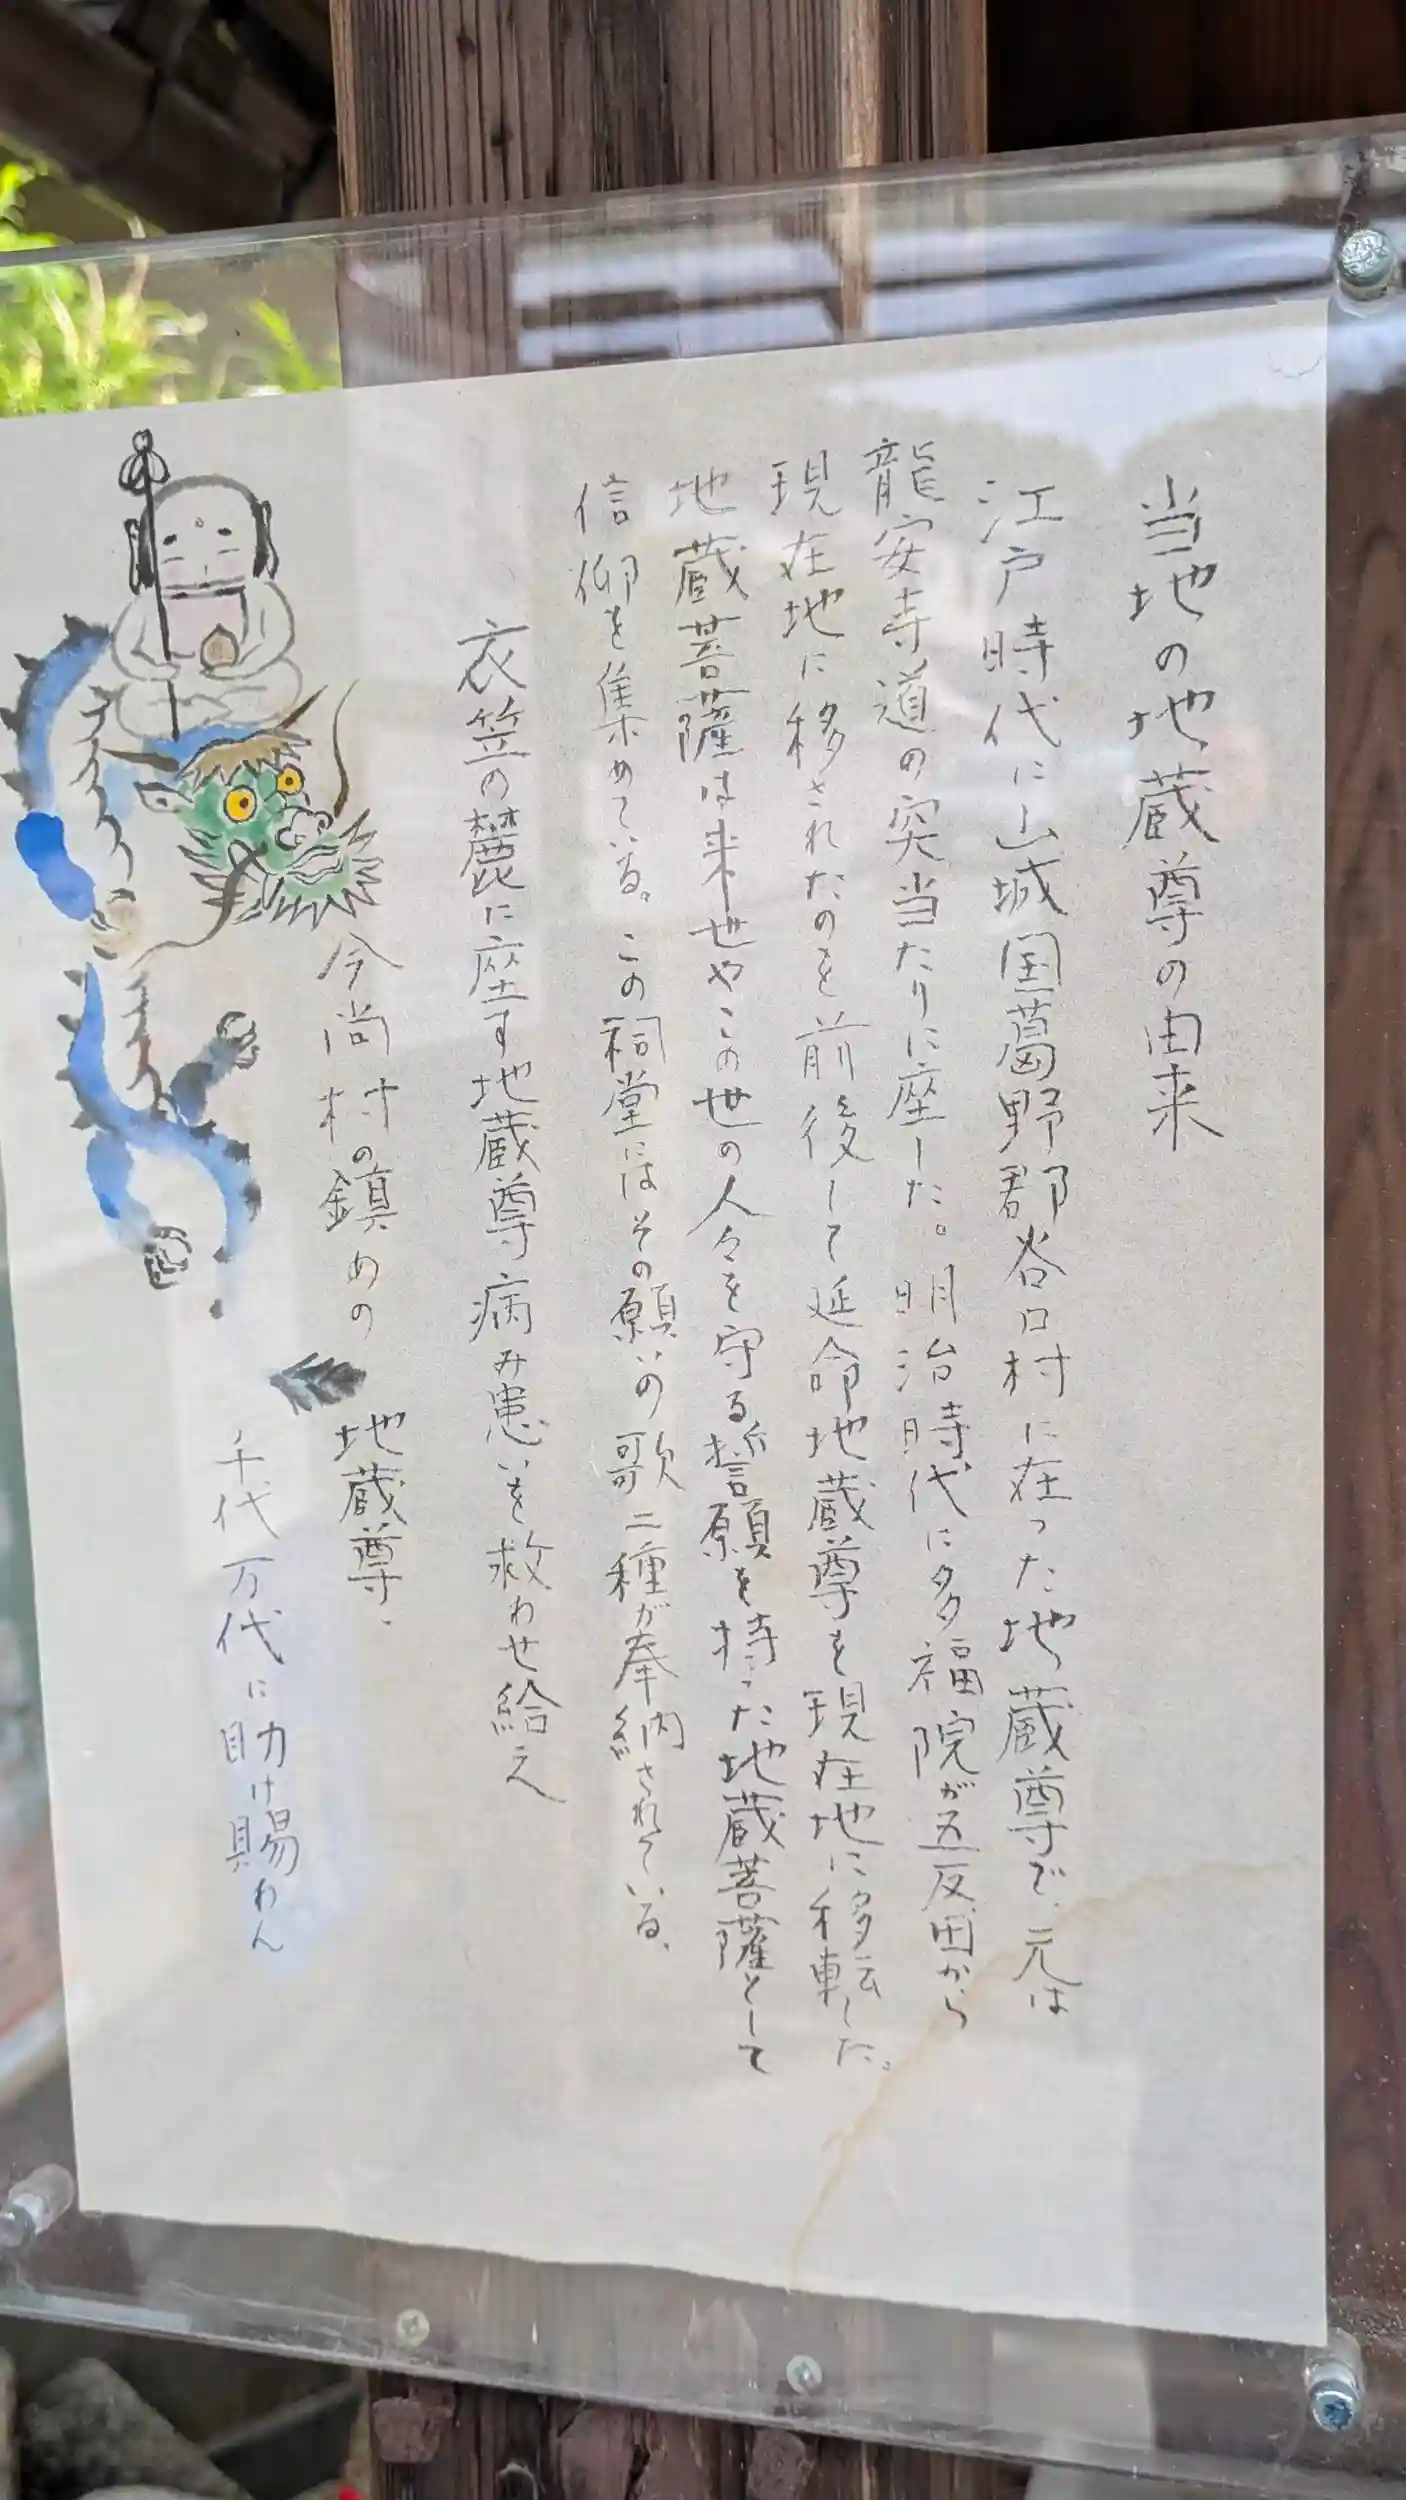 当地の地蔵尊の由来
江戸時代に山城国葛野郡谷口村に在った地蔵尊で、元は
龍安寺道の突当たりに座した。明治時代に多福院が五反田から
現在地に移されたのを前後して延命地蔵尊を現在地に移転した。
地蔵菩薩は来世やこの世の人々を守る誓願を持った地蔵菩薩として
信仰を集めている。この祠堂にはその願いの歌二種が奉納されている、
衣笠の麓に座す地蔵尊病み患いを救わせ給え
今尚村の鎮めの地蔵尊、
千代万代に助け賜わん